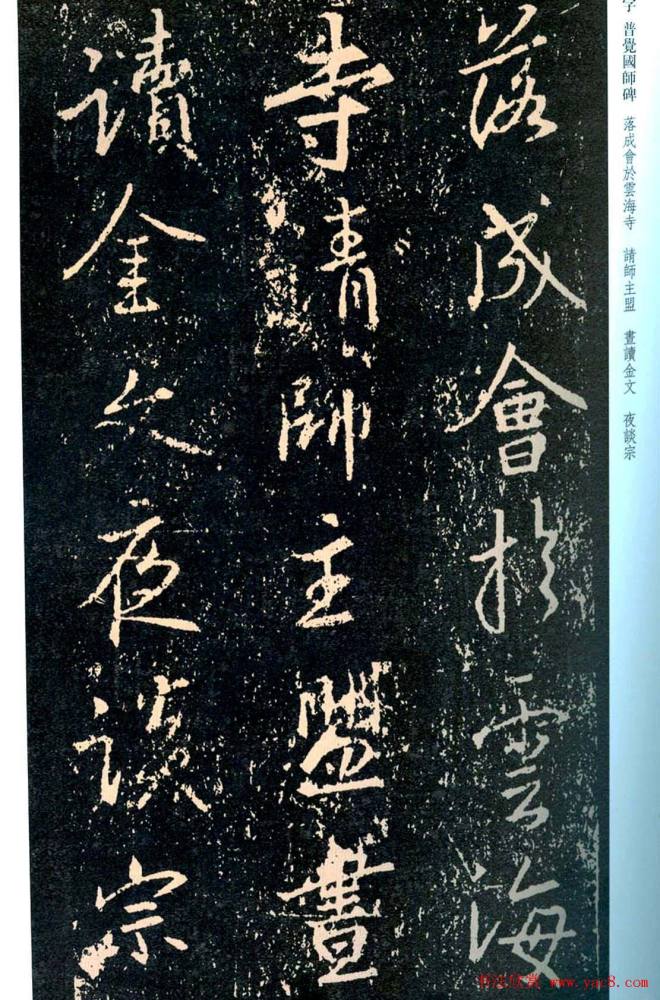 落成會於雲海
寺請師主盟晝
讀金文夜談宗
字 普覺國師碑 落成會於雲海寺 請師主盟 晝讀金文 夜談宗
书法欣赏 www.yac8.com